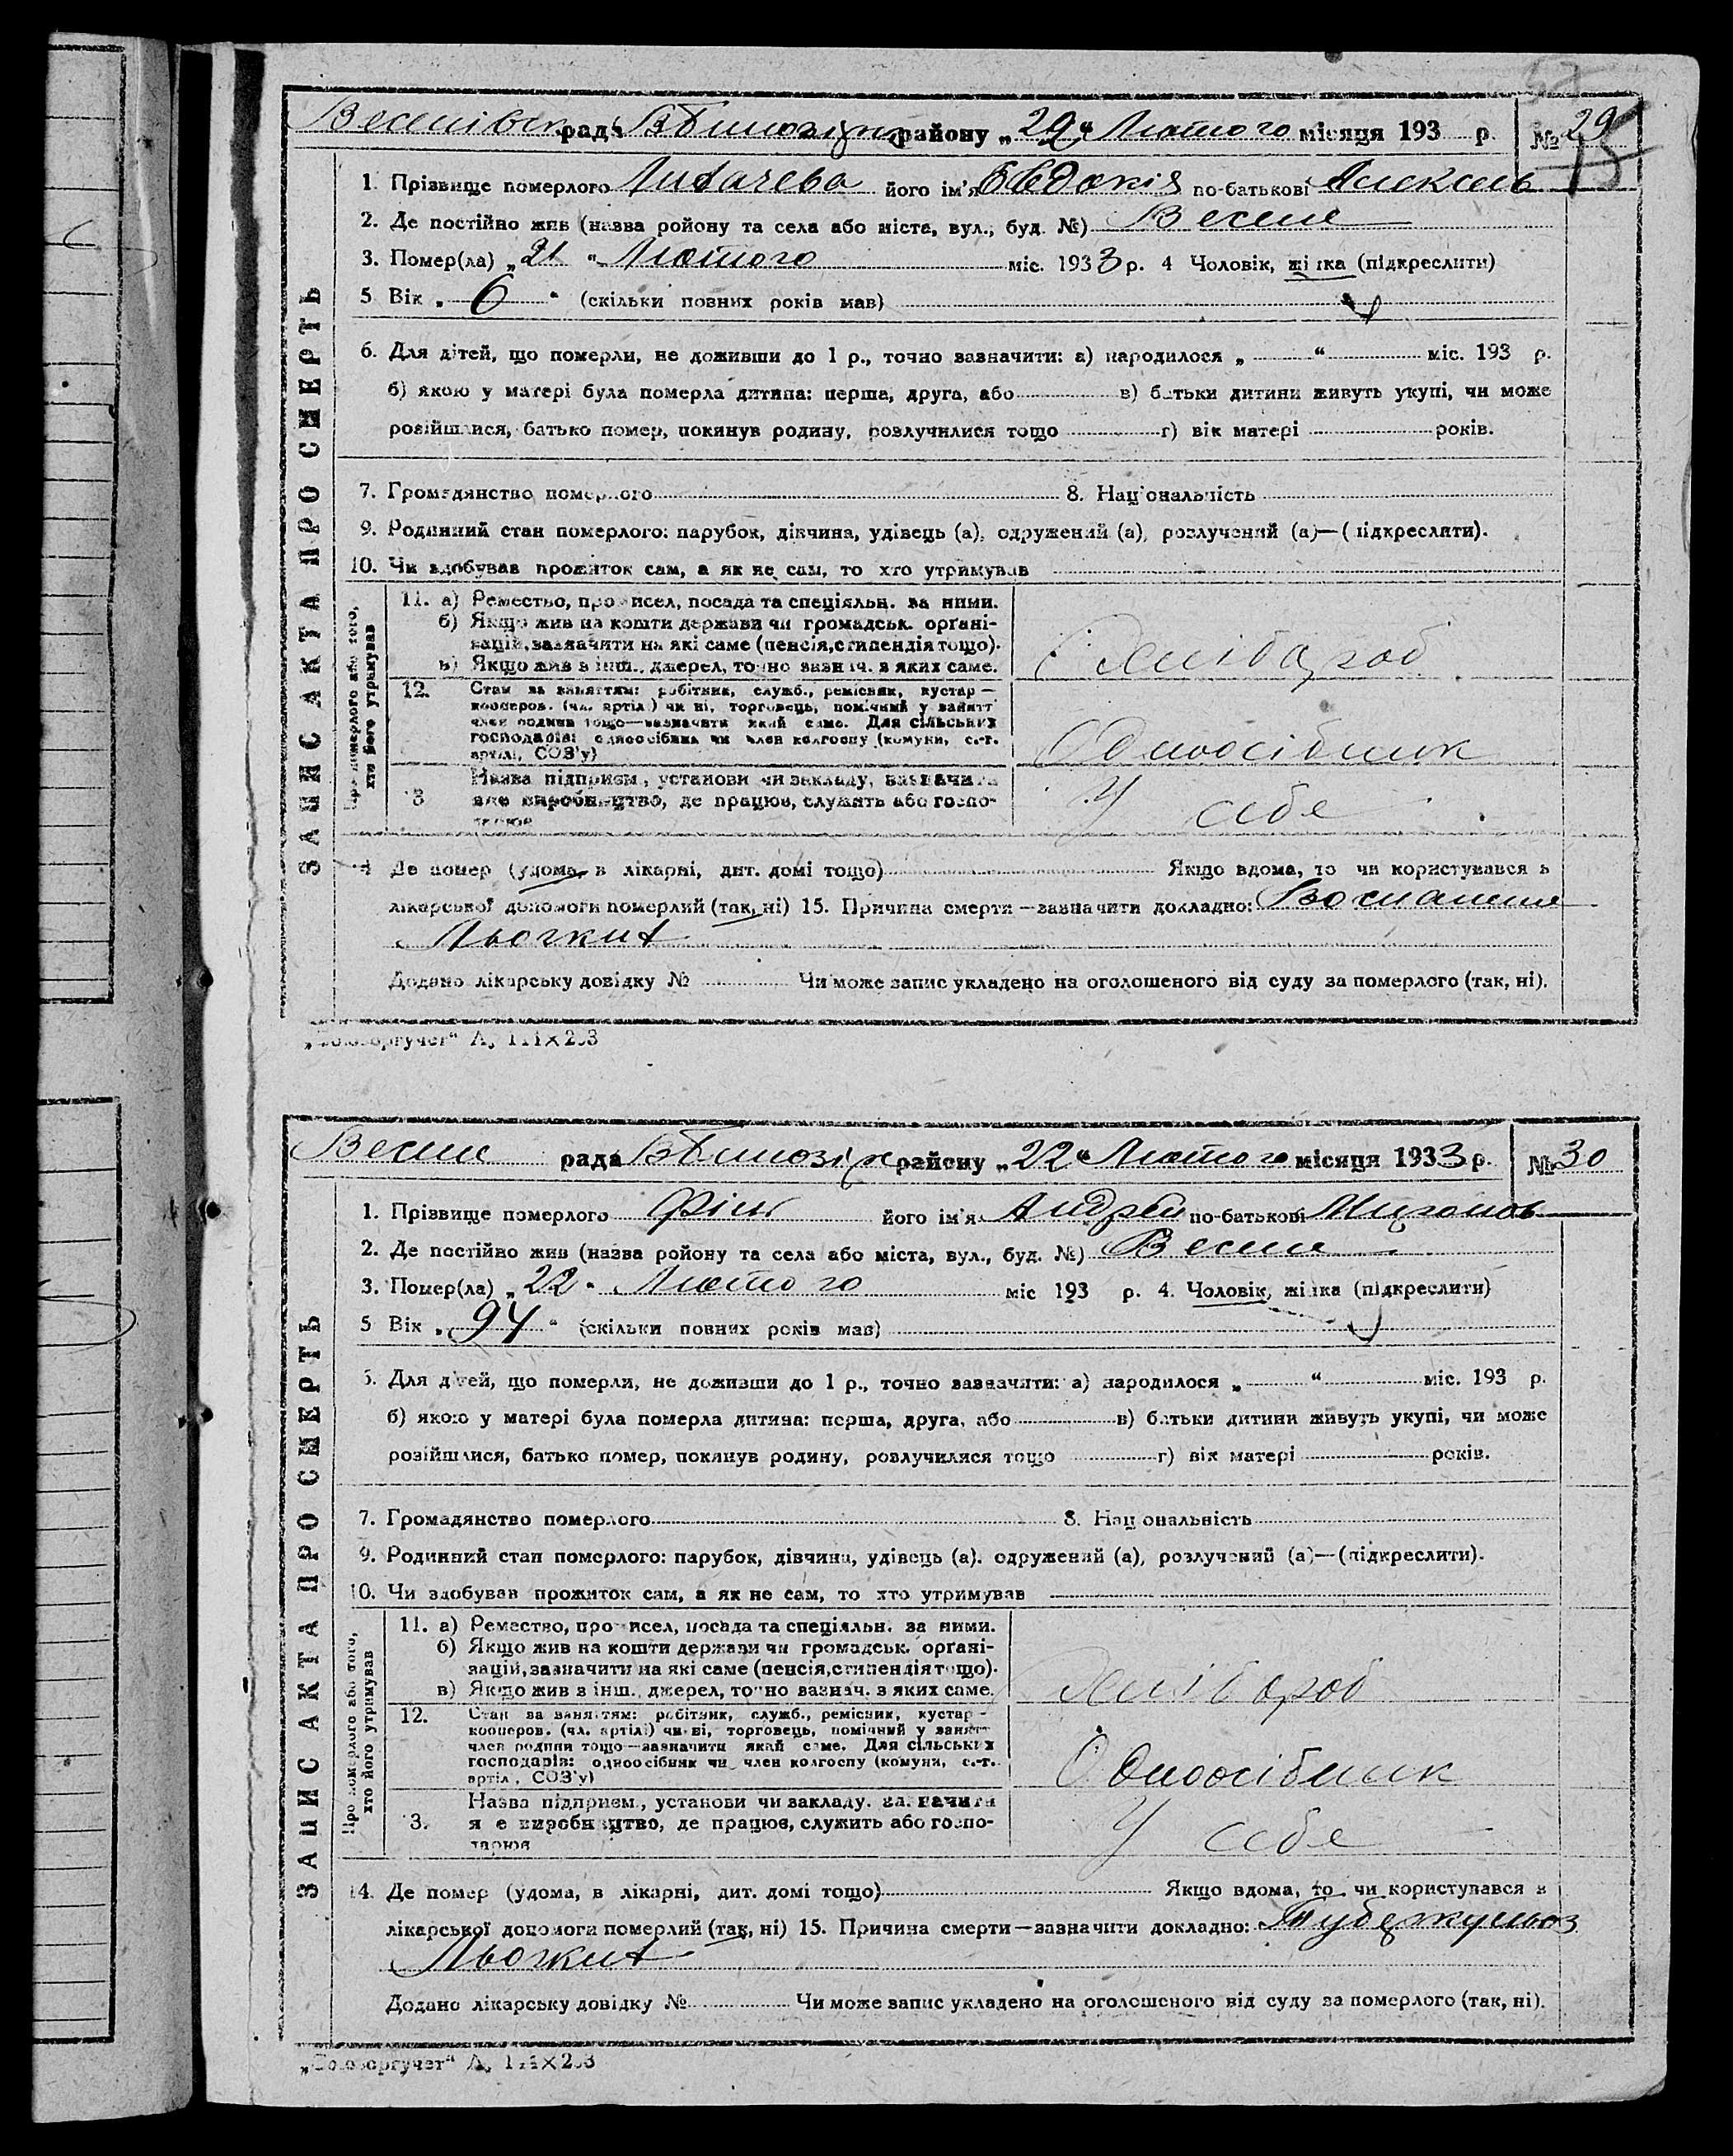 Веселівск рада В Білозірк району „29“ Лютого місяця 193 р. № 29
1. Прізвище померлого Лихачева його ім'я Евдокія по-батькові Алексеев
2. Де постійно жив (назва району та села або міста, вул., буд. №) Веселе
3. Помер(ла) „21“ Лютого міс. 1933 р. 4 Чоловік, жінка (підкреслити)
5 Вік „6“ (скільки повних років мав)
6. Для дітей, що померли, не доживши до 1 р., точно зазначити: а) народилося „ “ міс. 193 р.
б) якою у матері була померла дитина: перша, друга, або в) батьки дитини живуть укупі, чи може
розійшлися, батько помер, покинув родину, розлучилися тощо г) вік матері років.
7. Громадянство померлого 8. Національність
9. Родинний стан померлого: парубок, дівчина, удівець (а), одружений (а), розлучений (а)—(підкреслити).
10. Чи здобував прожиток сам, а як не сам, то хто утримував
ЗАПИС АКТА ПРО СМЕРТЬ
Про померлого або того, хто його утримував
11. а) Ремество, промисел, посада та спеціяльн. за ними.
б) Якщо жив на кошти держави чи громадськ. органі-
зацій, зазначити на які саме (пенсія, стипендія тощо).
в) Якщо жив з інш. джерел, точно зазнач. з яких саме.
Хлібороб
12. Стан за заняттям: робітник, служб., ремісник, кустар—
кооперов. (чл. артілі) чи ні, торговець, помічний у занятт
член родини тощо—зазначити який саме. Для сільських
господарів: одноосібник чи член колгоспу (комуни, с.-г.
артілі, СОЗ'у)
Одноосібник
13 Назва підприєм., установи чи закладу, зазначити
яке виробництво, де працює, служить або госпо-
дарює
У себе
14 Де помер (удома, в лікарні, дит. домі тощо) Якщо вдома, то чи користувався з
лікарської допомоги померлий (так, ні) 15. Причина смерти—зазначити докладно: Воспаление
Льогких
Додано лікарську довідку № Чи може запис укладено на оголошеного від суду за померлого (так, ні).
„Союзоргучет“ А,
Веселе рада В Білозірк району „22“ Лютого місяця 1933 р. № 30
1. Прізвище померлого Фінк його ім'я Андрей по-батькові
2. Де постійно жив (назва району та села або міста, вул., буд. №) Веселе
3. Помер(ла) „22“ Лютого міс 193 р. 4. Чоловік, жінка (підкреслити)
5 Вік „94“ (скільки повних років мав)
6. Для дітей, що померли, не доживши до 1 р., точно зазначити: а) народилося „ “ міс. 193 р.
б) якою у матері була померла дитина: перша, друга, або в) батьки дитини живуть укупі, чи може
розійшлися, батько помер, покинув родину, розлучилися тощо г) вік матері років.
7. Громадянство померлого 8. Національність
9. Родинний стан померлого: парубок, дівчина, удівець (а). одружений (а), розлучений (а)—(підкреслити).
10. Чи здобував прожиток сам, а як не сам, то хто утримував
ЗАПИС АКТА ПРО СМЕРТЬ
Про померлого або того, хто його утримував
11. а) Ремество, промисел, посада та спеціяльн. за ними.
б) Якщо жив на кошти держави чи громадськ. органі-
зацій, зазначити на які саме (пенсія, стипендія тощо).
в) Якщо жив з інш. джерел, точно зазнач. з яких саме.
Хлібороб
12. Стан за заняттям: робітник, служб., ремісник, кустар—
кооперов. (чл. артілі) чи ні, торговець, помічний у занятт
член родини тощо—зазначити який саме. Для сільських
господарів: одноосібник чи член колгоспу (комуни, с.-г.
артілі, СОЗ'у)
Одноосібник
13. Назва підприєм., установи чи закладу, зазначити
яке виробництво, де працює, служить або госпо-
дарює
У себе
14. Де помер (удома, в лікарні, дит. домі тощо) Якщо вдома, то чи користувався з
лікарської допомоги померлий (так, ні) 15. Причина смерти—зазначити докладно: Туберкульоз
Льогких
Додано лікарську довідку № Чи може запис укладено на оголошеного від суду за померлого (так, ні).
„Союзоргучет“ А,